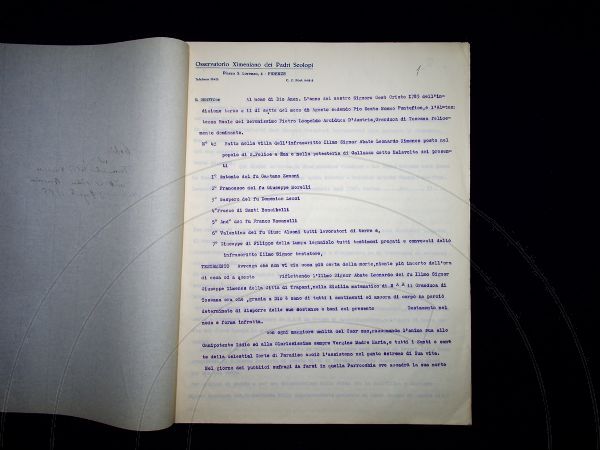 Osservatorio Ximeniano dei Padri Scolopi
Piazza S. Lorenzo, 6 - FIRENZE
1
In nome di Dio Amen. L'anno del nostro Signore Gesù Cristo 1785 dell'in-
dizione terza e il dì sette del mese di Agosto sedendo Pio Sesto Sommo Pontefice, e l'Al-
tezza Reale del Serenissimo Pietro Leopoldo Arciduca D'Austria, Granduca di Toscana felice-
mente dominante.
Fatto nella villa dell'infrascritto Illmo Signor Abate Leonardo Ximenes posta nel
popolo di S. Felice a Ema e nella potesteria di Galluzzo detto Malavolta dei presen-
ti
1° Antonio del fu Gaetano Zenoni
2° Francesco del fu Giuseppe Morelli
3° Gaspero del fu Domenico Lessi
4° Franco di Santi Boncibelli
5° And° del fu Franco Romanelli
6° Valentino del fu Gius: Alsemi tutti lavoratori di terra e,
7° Giuseppe di Filippo della Lampa legnaiolo tutti testimoni pregati e convocati dallo
infrascritto Illmo Signor testatore,
TESTAMENTO Avvenga che non vi sia cosa più certa della morte, niente più incerto dell'ora
di essa ed a questo riflettendo l'Illmo Signor Abate Leonardo del fu Illmo Signor
Giuseppe Ximenes della Città di Trapani, nella Sicilia matematico di S A R il Granduca di
Toscana ora che, grazie a Dio è sano di tutti i sentimenti ed ancora di corpo ha perciò
determinato di disporre delle sue sostanze e beni col presente Testamento nel
modo e forma infratta.
con ogni maggiore umiltà del cuor suo, raccomanda l'anima sua allo
Onnipotente Iddio ed alla Gloriosissima sempre Vergine Madre Maria, e tutti i Santi e sant
te della Celestial Corte di Paradiso acciò l'assistano nel punto estremo di Sua vita.
Nel giorno dei pubblici sufragi da farsi in quella Parrocchia ove accadrà la sua morte